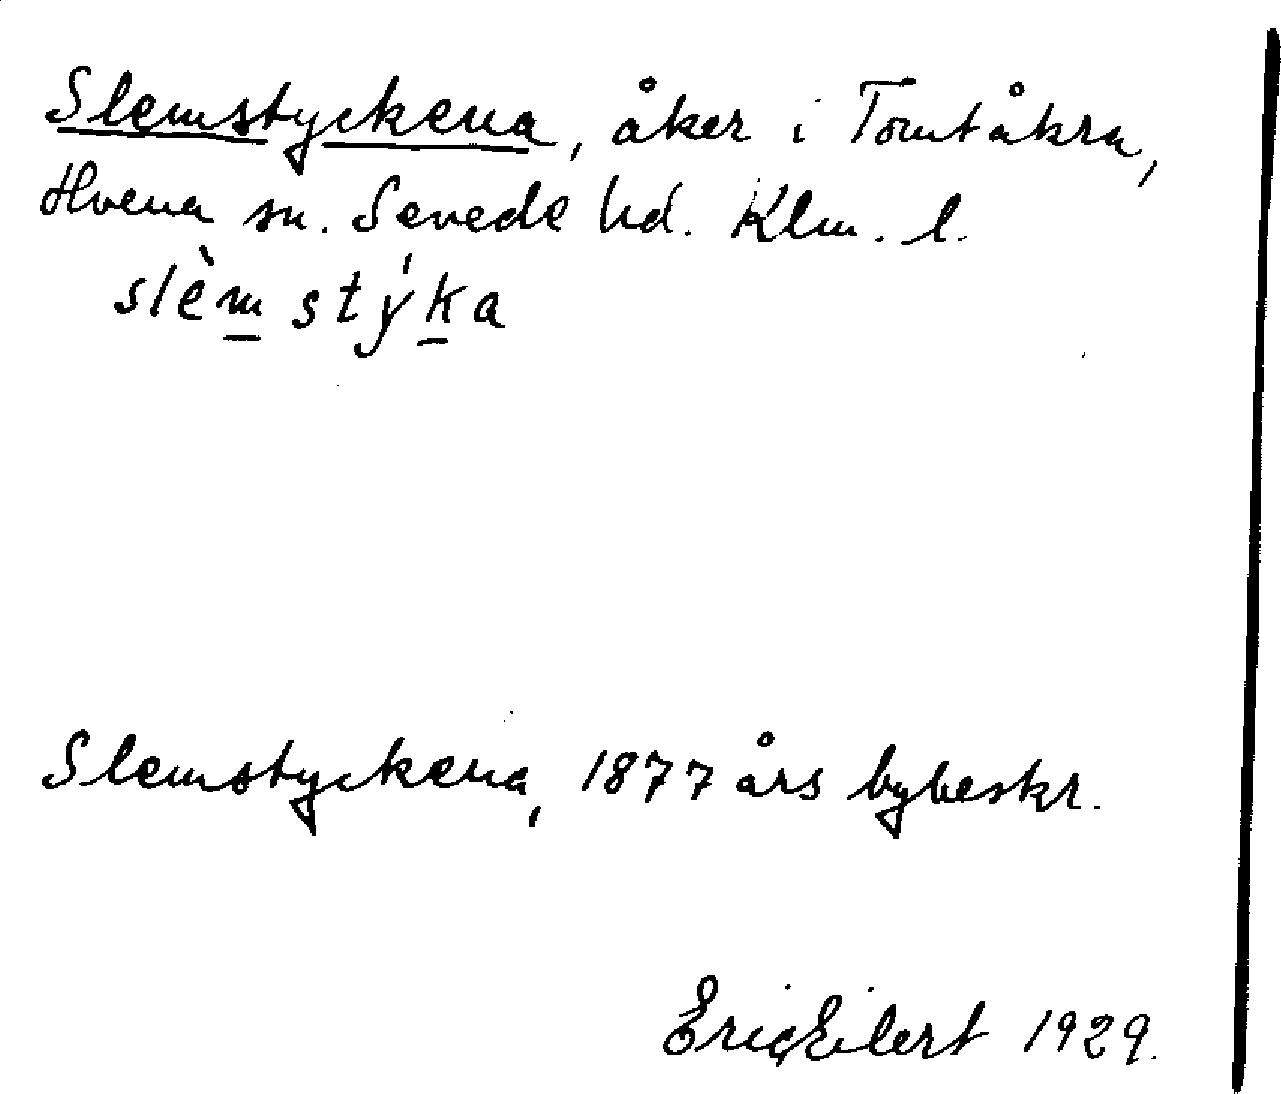 Slemstyckena, åker i Tomtåkra,
Hvena sn. Sevede hd. Klm. l.
slèmstýka
Slemstyckena, 1877 års bybeskr.
Eric Eilert 1929.